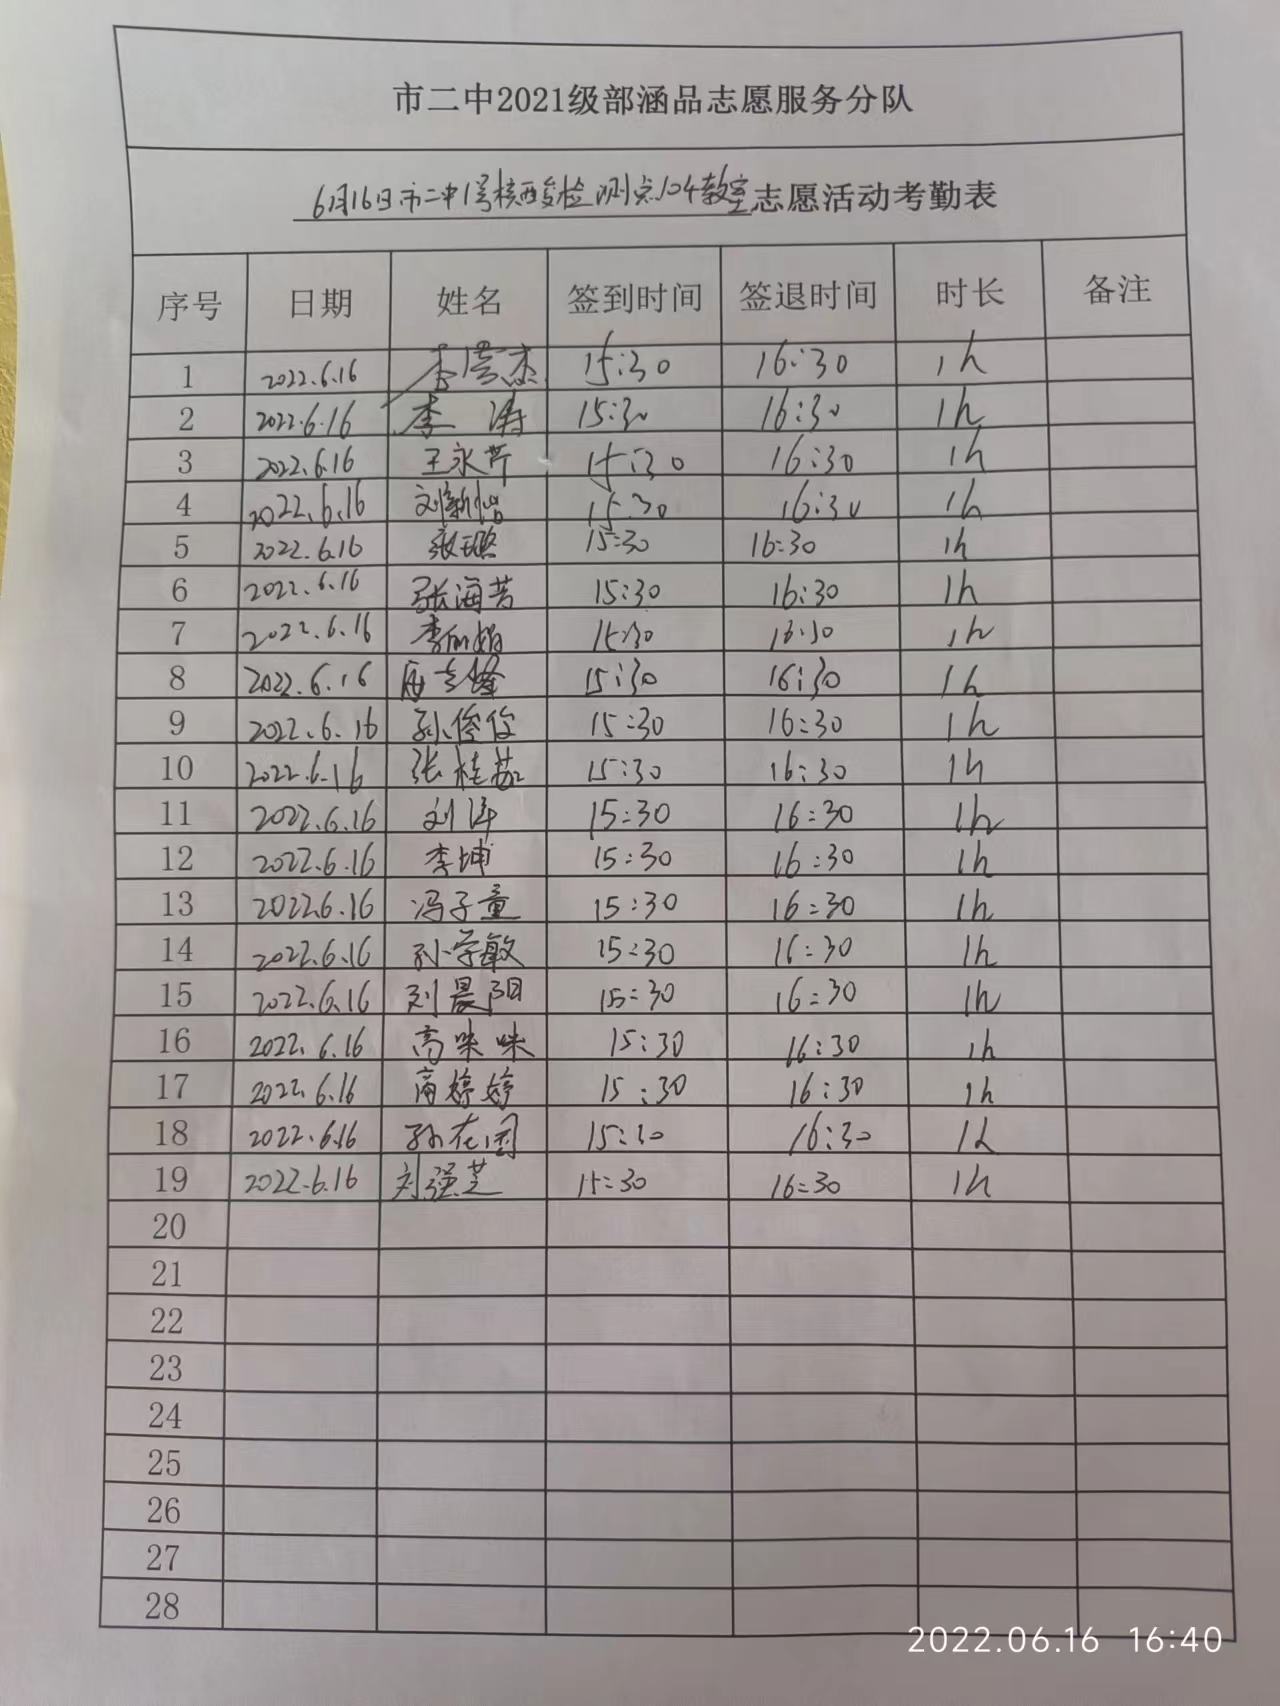 市二中2021级部涵品志愿服务分队
6月16日市二中1号核酸检测点104教室志愿活动考勤表
序号 日期 姓名 签到时间 签退时间 时长 备注
1 2022.6.16 李 杰 15:30 16:30 1h
2 2022.6.16 李涛 15:30 16:30 1h
3 2022.6.16 王永芹 15:30 16:30 1h
4 2022.6.16 刘新 15:30 16:30 1h
5 2022.6.16 张璐 15:30 16:30 1h
6 2022.6.16 张海芳 15:30 16:30 1h
7 2022.6.16 李丽娟 15:30 16:30 1h
8 2022.6.16 15:30 16:30 1h
9 2022.6.16 孙俊俊 15:30 16:30 1h
10 2022.6.16 张桂茹 15:30 16:30 1h
11 2022.6.16 刘洋 15:30 16:30 1h
12 2022.6.16 李坤 15:30 16:30 1h
13 2022.6.16 冯子童 15:30 16:30 1h
14 2022.6.16 孙学敏 15:30 16:30 1h
15 2022.6.16 刘晨阳 15:30 16:30 1h
16 2022.6.16 高咪咪 15:30 16:30 1h
17 2022.6.16 高婷婷 15:30 16:30 1h
18 2022.6.16 孙在国 15:30 16:30 1h
19 2022.6.16 刘强芝 15:30 16:30 1h
20
21
22
23
24
25
26
27
28
2022.06.16 16:40